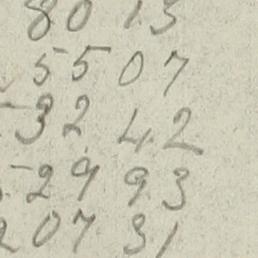 80 13
55 07
32 42
29 93
207 31